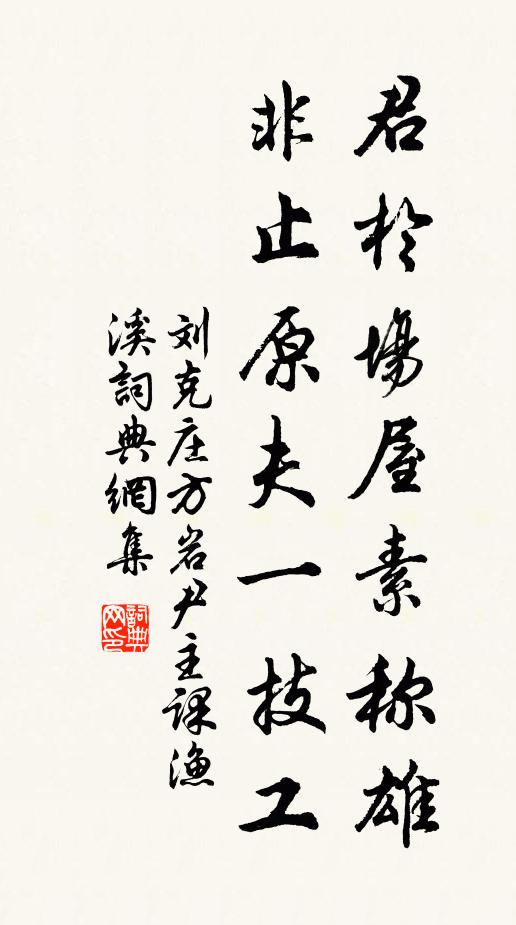 君於場屋素称雄
非止原夫一技工
刘克庄方岩尹主課漁
溪詞典網集
詞典网印